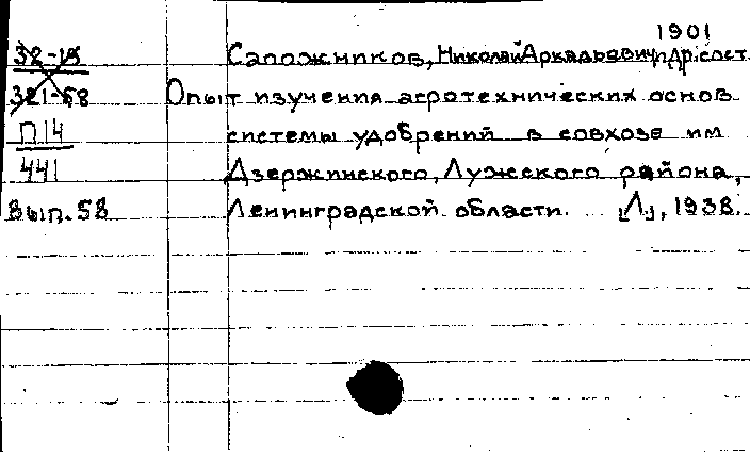 1901
32-15 Сапожников, Николай Аркадьевич и др. сост.
321-58 Опыт изучения агротехнических основ
П14 системы удобрений в совхозе им
441 Дзержинского, Лужского района,
Вып. 58 Ленинградской области. [Л], 1938.